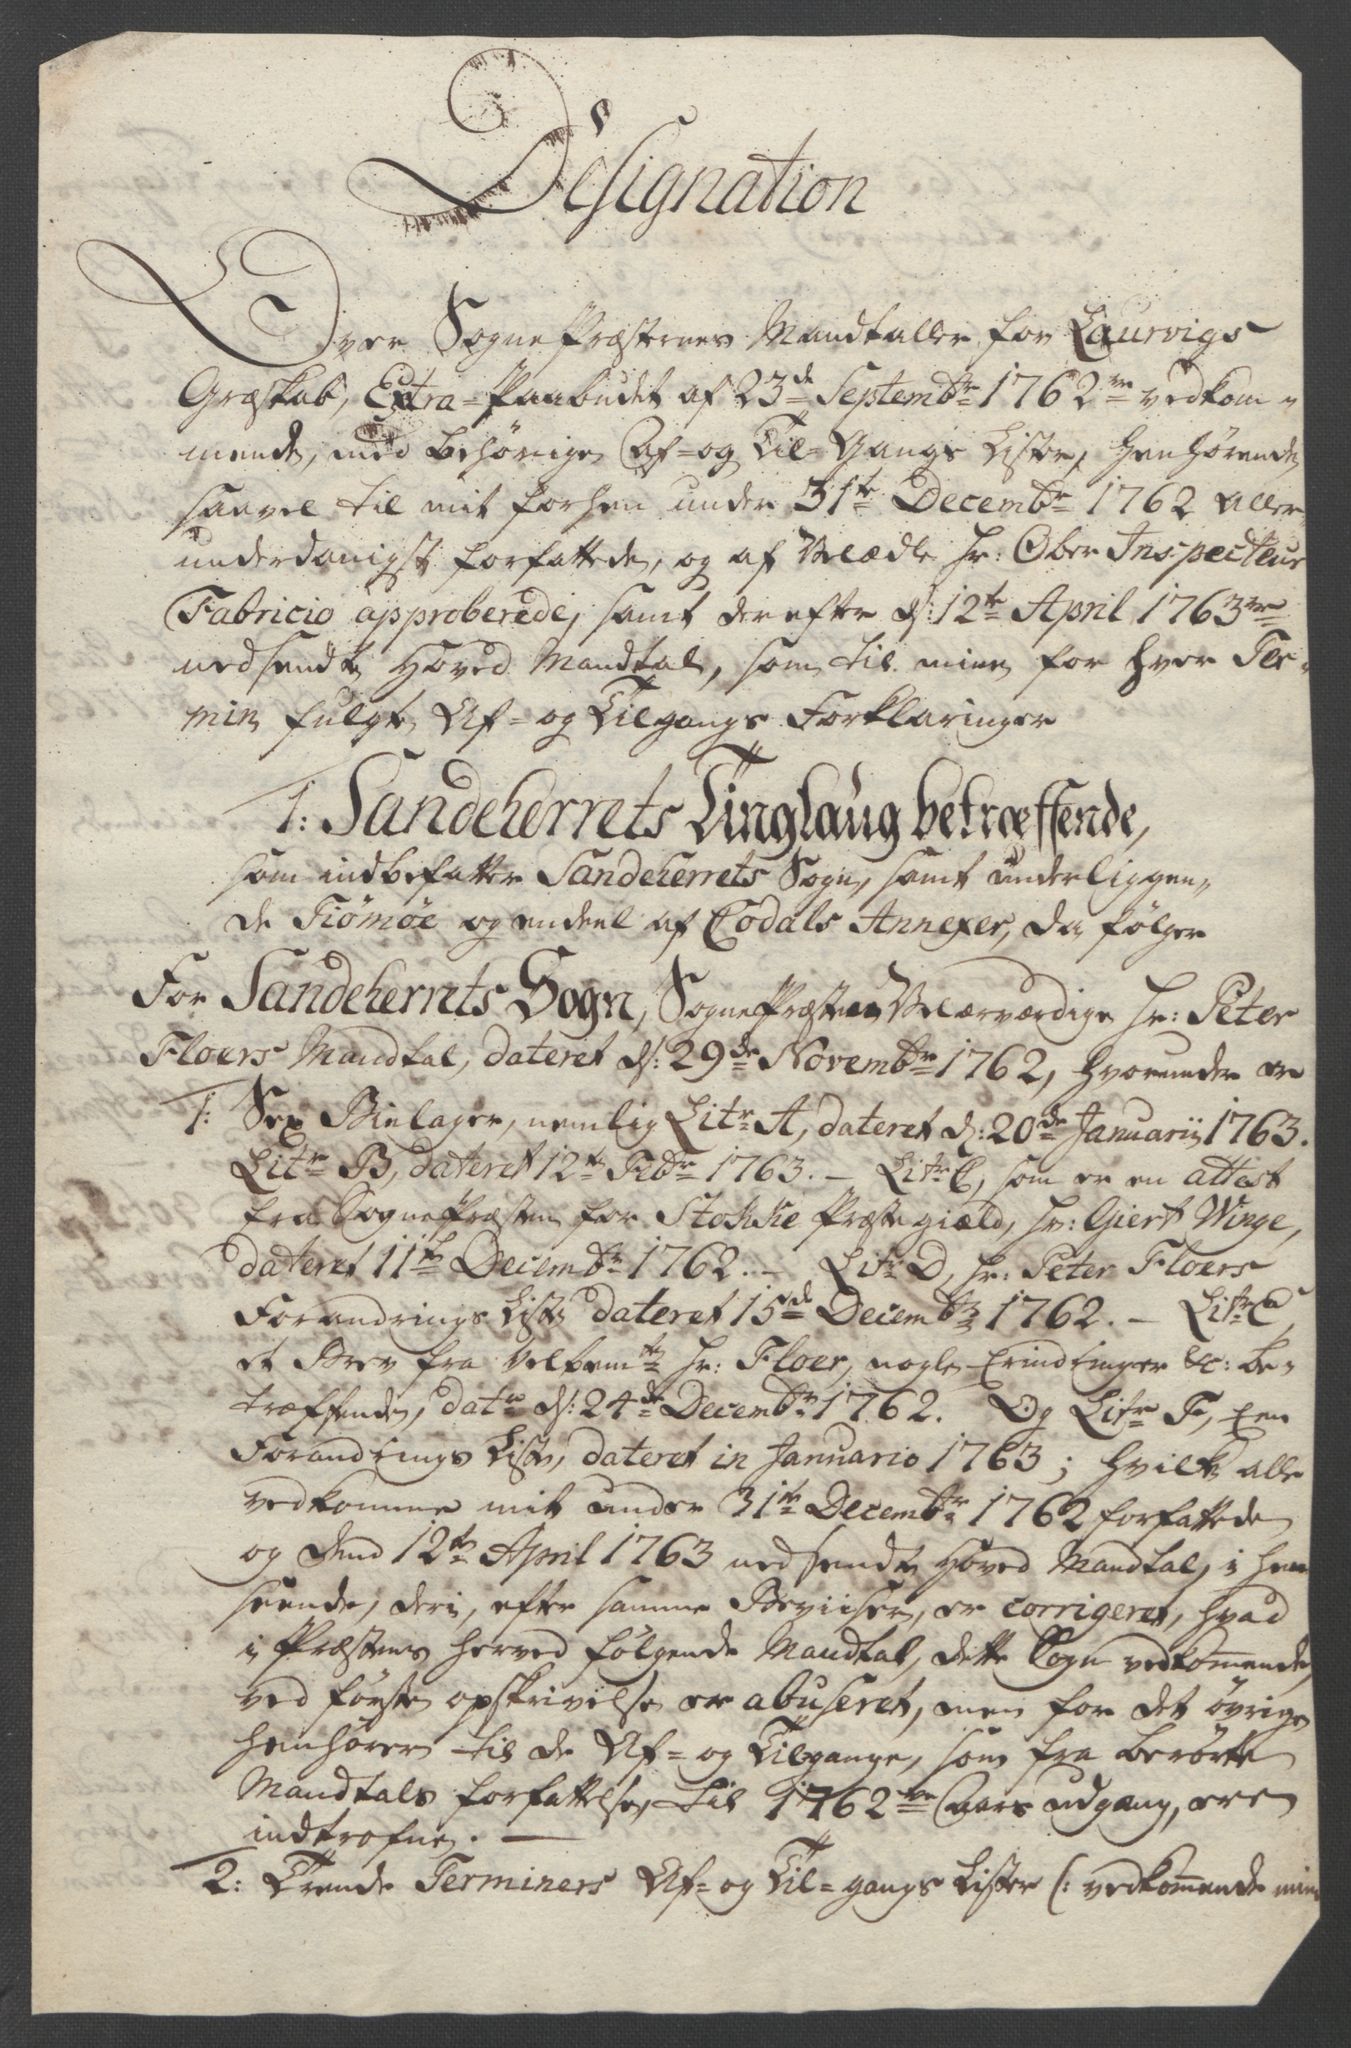 Designation
Over SognePræsternes Mandtaller for Laurvigs
Græfskab, Extra-Paabudet af 23de Septembr 1762re vedkom-
mende, med behørige Af- og Til-Gangs Lister, henhørende
saavel til mit forhen under 31te Decembr 1762 aller-
underdanigst forfattede, og af Velædle Hr: Ober Inspecteur
Fabricio approberede, samt derefter d: 12te April 1763
nedsendte Hoved Mandtal, som til mine for hver Ter-
min fulgte Af- og Tilgangs Forklaringer
1: Sandeherrets Tinglaug betræffende,
som indbefatter Sandeherrets Sogn, samt underliggen-
de Tiømøe og endeel af Codals Annexer, da følger
For Sandeherrets Sogn, SognePræsten Velærværdige Hr: Peter
Floers Mandtal, dateret d: 29de Novembr 1762, hvorunder er
1: Sex Bielager, nemlig Litr A, dateret d: 20de Januarii 1763.
Litr B, dateret 12te Febr 1763. — Litr C, som er en attest
fra SognePræsten for Stokke Præstegiæld, Hr: Giert Winge,
dateret 11te Decembr 1762. — Litr D, Hr: Peter Floers
Forandrings Liste dateret 15de Decembr 1762. — Litr E,
et Brev fra Velbemte Hr: Floer, nogle Erindringer &c: be-
træffende, datr d: 24de Decembr 1762. Og Litr F, Een
Forandrings Liste, dateret in Januario 1763; hvilke alle
vedkomme mit under 31te Decembr 1762 forfattede
og dend 12te April 1763 nedsendte Hoved Mandtal, i hen-
seende, deri, efter samme Beviiser, er corrigeret, hvad
i Præstens herved følgende Mandtal, dette Sogn vedkommende,
ved første opskrivelse er abuseret, men for det øvrige
henhører til de Af- og Tilgange, som fra berørte
Mandtals forfattelse, til 1762re Aars udgang, ere
indtrofne. —
2: Trende Terminers Af- og Til-gangs Lister (: vedkommende mine